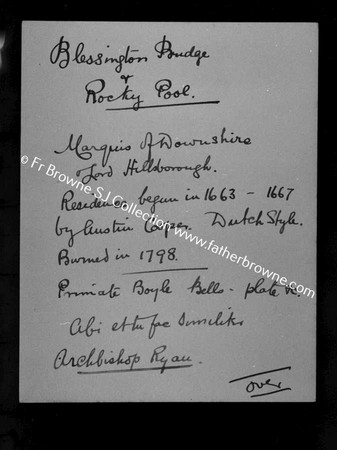 Blessington Bridge
&
Rocky Pool.
Marquis of Downshire
& Lord Hillsborough.
Residence begun in 1663 - 1667
by Austin Cooper. Dutch Style.
Burned in 1798.
Primate Boyle Bells - plate &c.
Abi et tu fac similiter
Archbishop Ryan.
over
© Fr Browne SJ Collection www.fatherbrowne.com